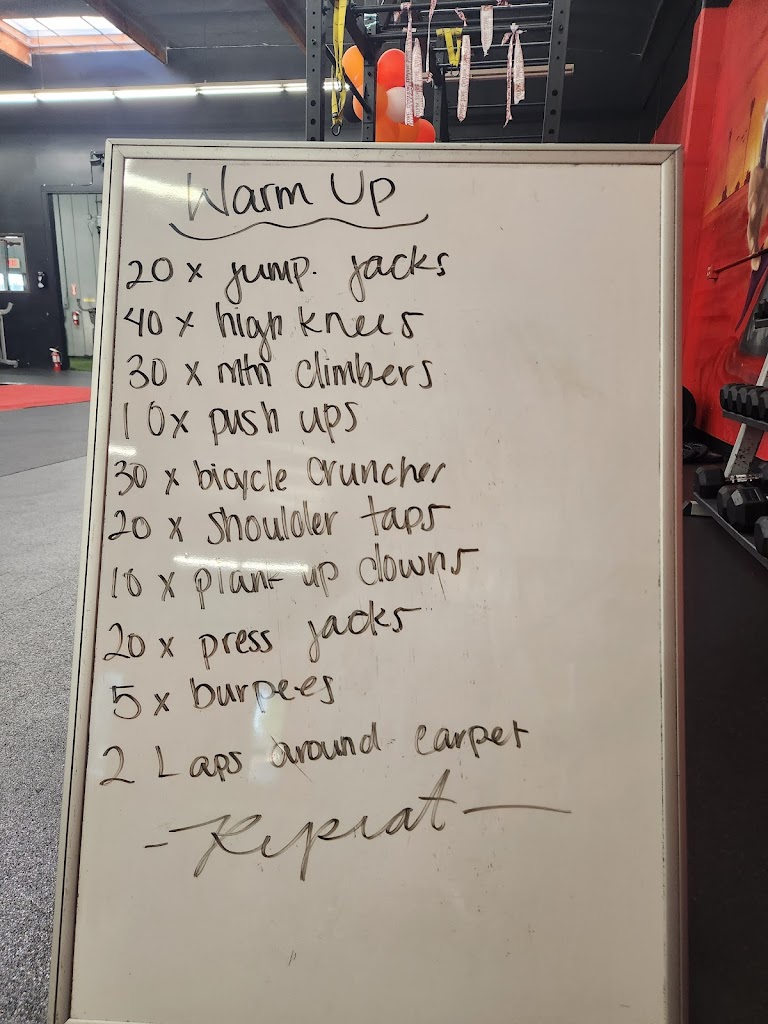 Warm Up
20 x jump. jacks
40 x high knees
30 x mtn climbers
10x push ups
30 x bicycle crunches
20 x shoulder taps
10 x plank up downs
20 x press jacks
5 x burpees
2 Laps around carpet
- Repeat -